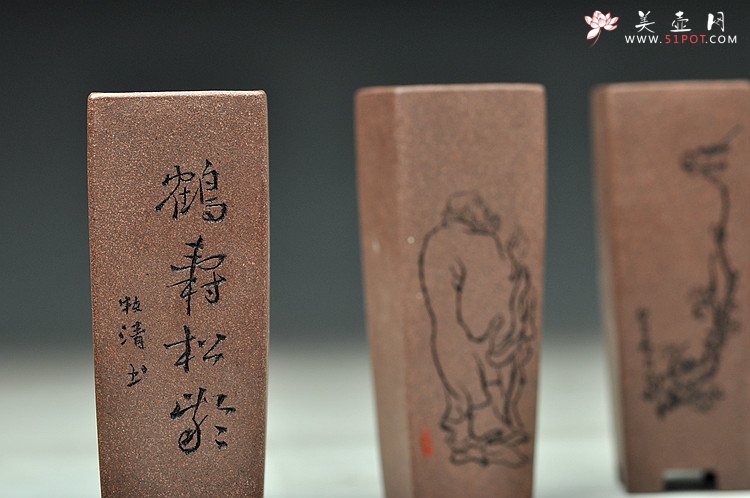 美壶网
WWW.51POT.COM
鹤寿松龄
牧清书